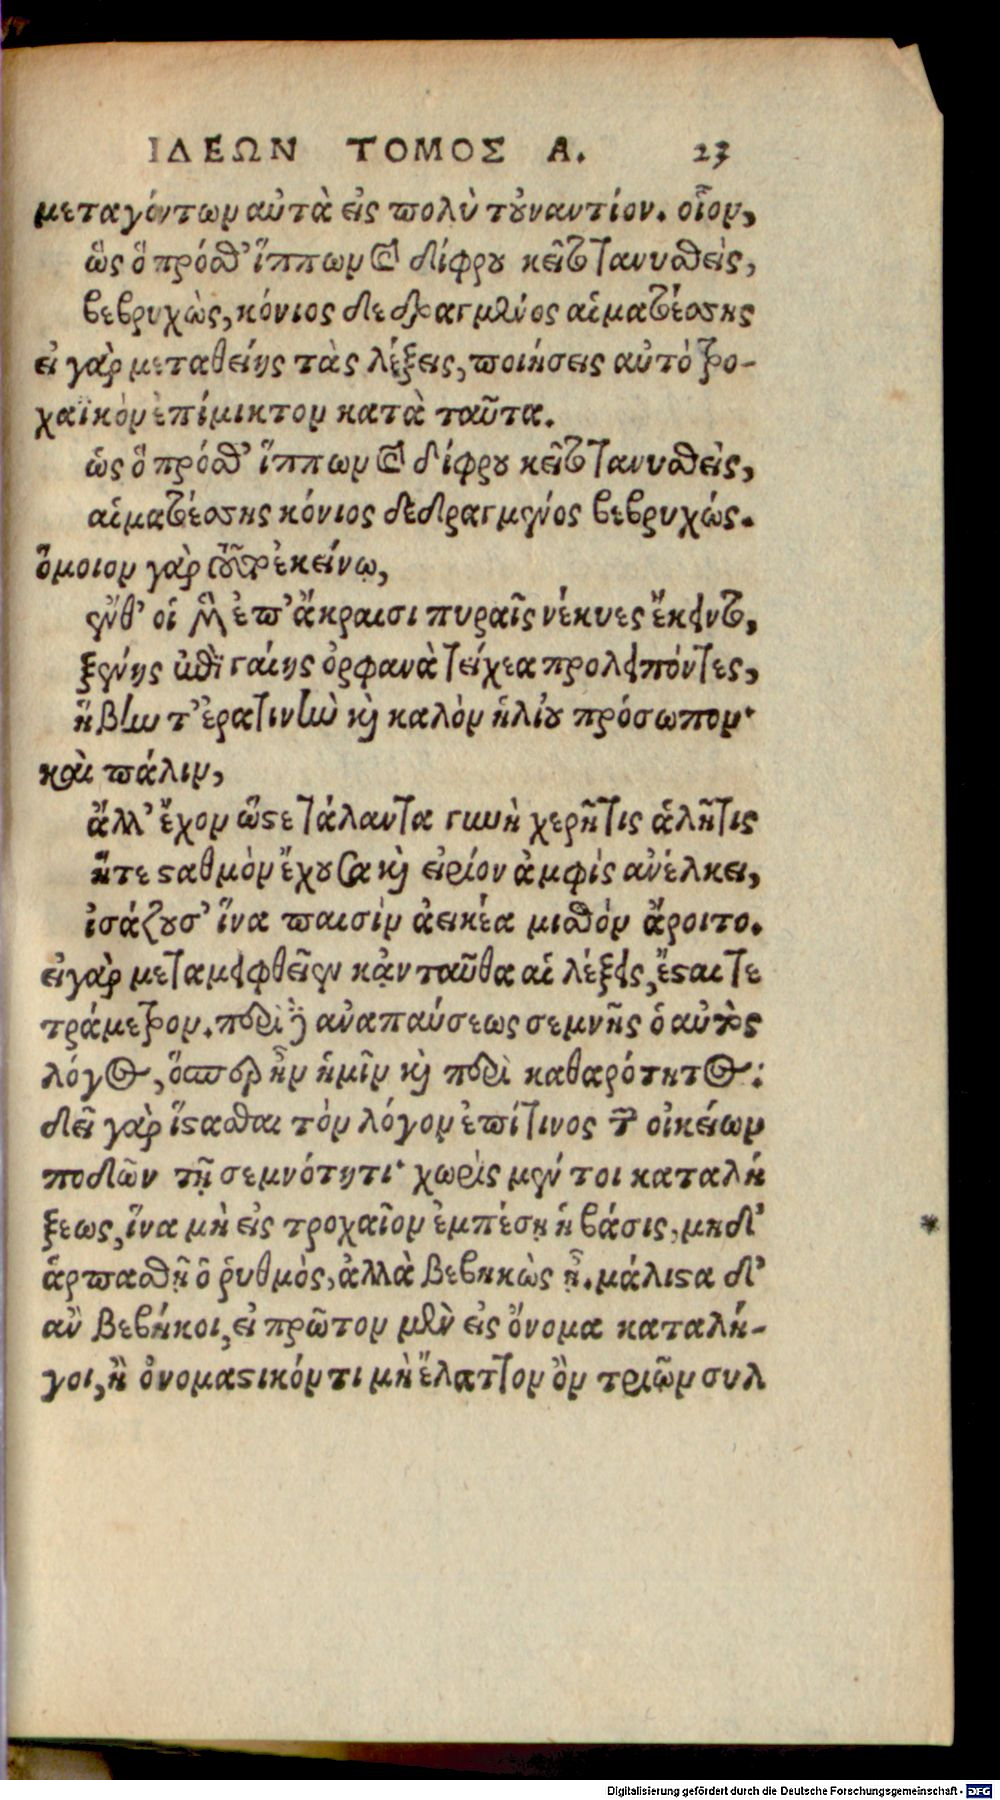 ΙΔΕΩΝ ΤΟΜΟΣ Α. 23
μεταγόντων αὐτὰ εἰς πολὺ τοὐναντίον. οἷον,
ὣς ὃ πρόσθ’ ἵππων καὶ δίφρου κεῖτο τανυσθεὶς,
βεβρυχὼς, κόνιος δεδραγμένος αἱματοέσσης
εἰ γὰρ μεταθείης τὰς λέξεις, ποιήσεις αὐτὸ τρο-
χαϊκὸν ἐπίμικτον κατὰ ταῦτα.
ὡς ὃ πρόσθ’ ἵππων καὶ δίφρου κεῖτο τανυσθεὶς,
αἱματοέσσης κόνιος δεδραγμένος βεβρυχώς.
ὅμοιον γὰρ τοῦτο ἐκείνῳ,
ἔνθ’ οἱ μὲν ἐπ’ ἄκραισι πυραῖς νέκυες ἔκειντο,
ξένης ἐπὶ γαίης ὀρφανὰ τείχεα προλειπόντες,
ἥβην τ’ ἐρατινὴν καὶ καλὸν ἡλίου πρόσωπον·
καὶ πάλιν,
ἄλλ’ ἔχον ὥστε τάλαντα γυνὴ χερνῆτις ἀλῆτις
ἥτε σταθμὸν ἔχουσα καὶ εἰρίον ἀμφίς ἀνέλκει,
ἰσάζουσ’ ἵνα παισὶν ἀεικέα μισθὸν ἄροιτο.
εἰ γὰρ μεταμειφθεῖεν κἀνταῦθα αἱ λέξεις, ἔσται τε
τράμετρον. περὶ δὲ ἀναπαύσεως σεμνῆς ὁ αὐτὸς
λόγος, ὅσπερ ἦν ἡμῖν καὶ περὶ καθαρότητος:
δεῖ γὰρ ἵστασθαι τὸν λόγον ἐπί τινος τῶν οἰκείων
ποδῶν τῇ σεμνότητι· χωρὶς μέν τοι καταλή
ξεως, ἵνα μὴ εἰς τροχαῖον ἐμπέσῃ ἡ βάσις, μηδ’
ἁρπασθῇ ὁ ῥυθμὸς, ἀλλὰ βεβηκὼς ᾖ. μάλιστα δ’
ἂν βεβήκοι, εἰ πρῶτον μὲν εἰς ὄνομα καταλή-
γοι, ἢ ὀνομαστικόν τι μὴ ἔλαττον ὂν τριῶν συλ
Digitalisierung gefördert durch die Deutsche Forschungsgemeinschaft - DFG